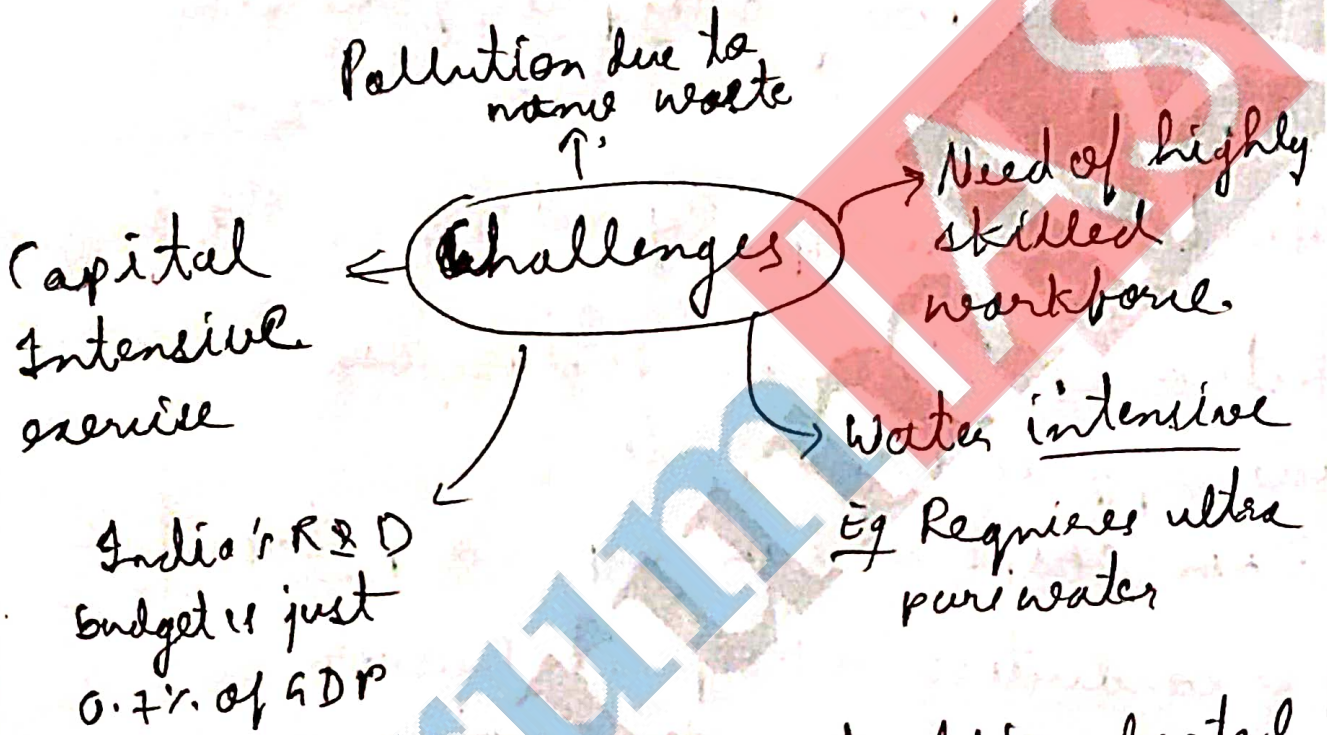 Pollution due to
nano waste
Challenges
Need of highly
skilled
workforce
Capital
Intensive
exercise
Water intensive
Eg Requires ultra
pure water
India's R&D
budget is just
0.7% of GDP
IAS
um